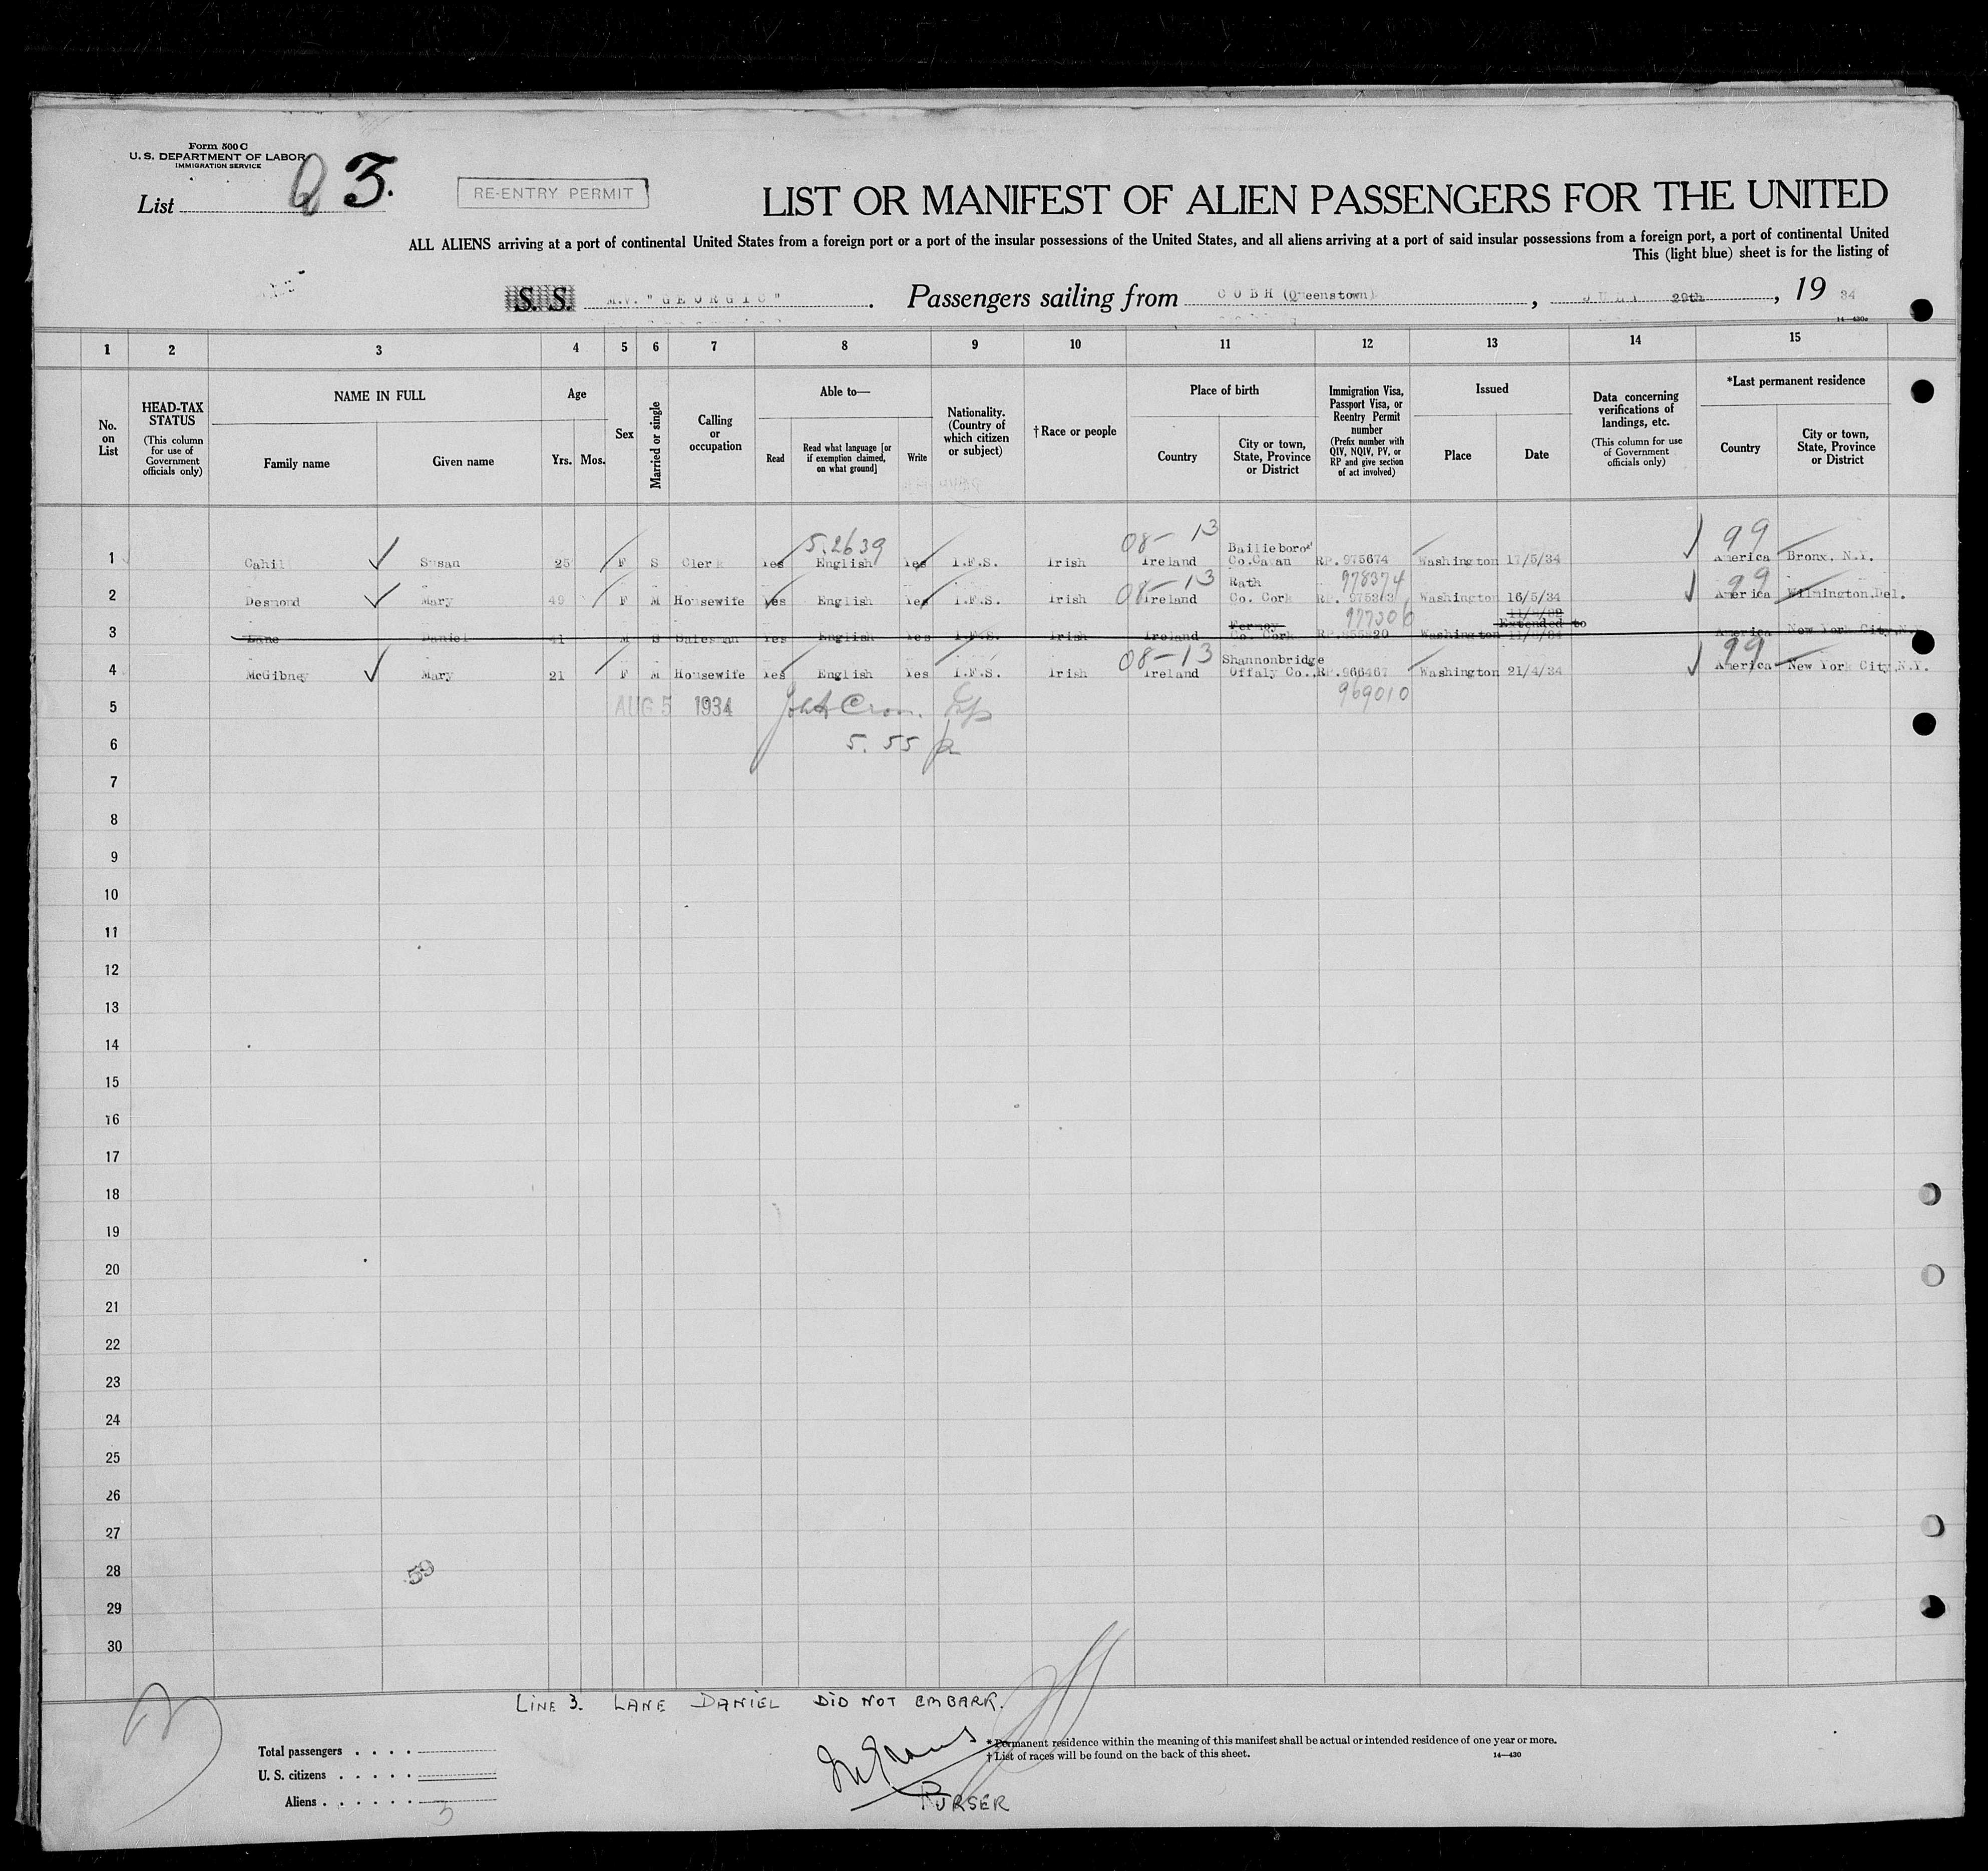 Form 500 C
U. S. DEPARTMENT OF LABOR
IMMIGRATION SERVICE
List 3.
RE-ENTRY PERMIT
LIST OR MANIFEST OF ALIEN PASSENGERS FOR THE UNITED
ALL ALIENS arriving at a port of continental United States from a foreign port or a port of the insular possessions of the United States, and all aliens arriving at a port of said insular possessions from a foreign port, a port of continental United
This (light blue) sheet is for the listing of
S. S. M.V. "GEORGIC". Passengers sailing from COBH (Queenstown), JULY 29th, 19 34
14—430c
1 2 3 4 5 6 7 8 9 10 11 12 13 14 15
No. on List
HEAD-TAX STATUS (This column for use of Government officials only)
NAME IN FULL
Family name Given name
Age
Yrs. Mos.
Sex
Married or single
Calling or occupation
Able to—
Read Read what language [or if exemption claimed, on what ground] Write
Nationality. (Country of which citizen or subject)
† Race or people
Place of birth
Country City or town, State, Province or District
Immigration Visa, Passport Visa, or Reentry Permit number (Prefix number with QIV, NQIV, PV, or RP and give section of act involved)
Issued
Place Date
Data concerning verifications of landings, etc. (This column for use of Government officials only)
*Last permanent residence
Country City or town, State, Province or District
5.2639 08-13 Bailieboro' 99
1 Cahill Susan 25 F S Clerk Yes English Yes I.F.S. Irish Ireland Co.Cavan RP.975674 Washington 17/5/34 America Bronx, N.Y.
08-13 Rath 978374 99
2 Desmond Mary 49 F M Housewife Yes English Yes I.F.S. Irish Ireland Co. Cork Washington 16/5/34 America Wilmington,Del.
Fermoy 977306 Extended to
3 Lane Daniel 41 M S Salesman Yes English Yes I.F.S. Irish Ireland Co. Cork Washington America New York City,N.Y.
08-13 Shannonbridge 99
4 McGibney Mary 21 F M Housewife Yes English Yes I.F.S. Irish Ireland Offaly Co., RP.966467 Washington 21/4/34 America New York City,N.Y.
969010
5 AUG 5 1934
6 5.55 p
7
8
9
10
11
12
13
14
15
16
17
18
19
20
21
22
23
24
25
26
27
28 59
29
30
LINE 3. LANE DANIEL DID NOT EMBARK.
Total passengers . . . .
U. S. citizens . . . . .
Aliens . . . . . . 3
* Permanent residence within the meaning of this manifest shall be actual or intended residence of one year or more.
† List of races will be found on the back of this sheet.
14—430
PURSER